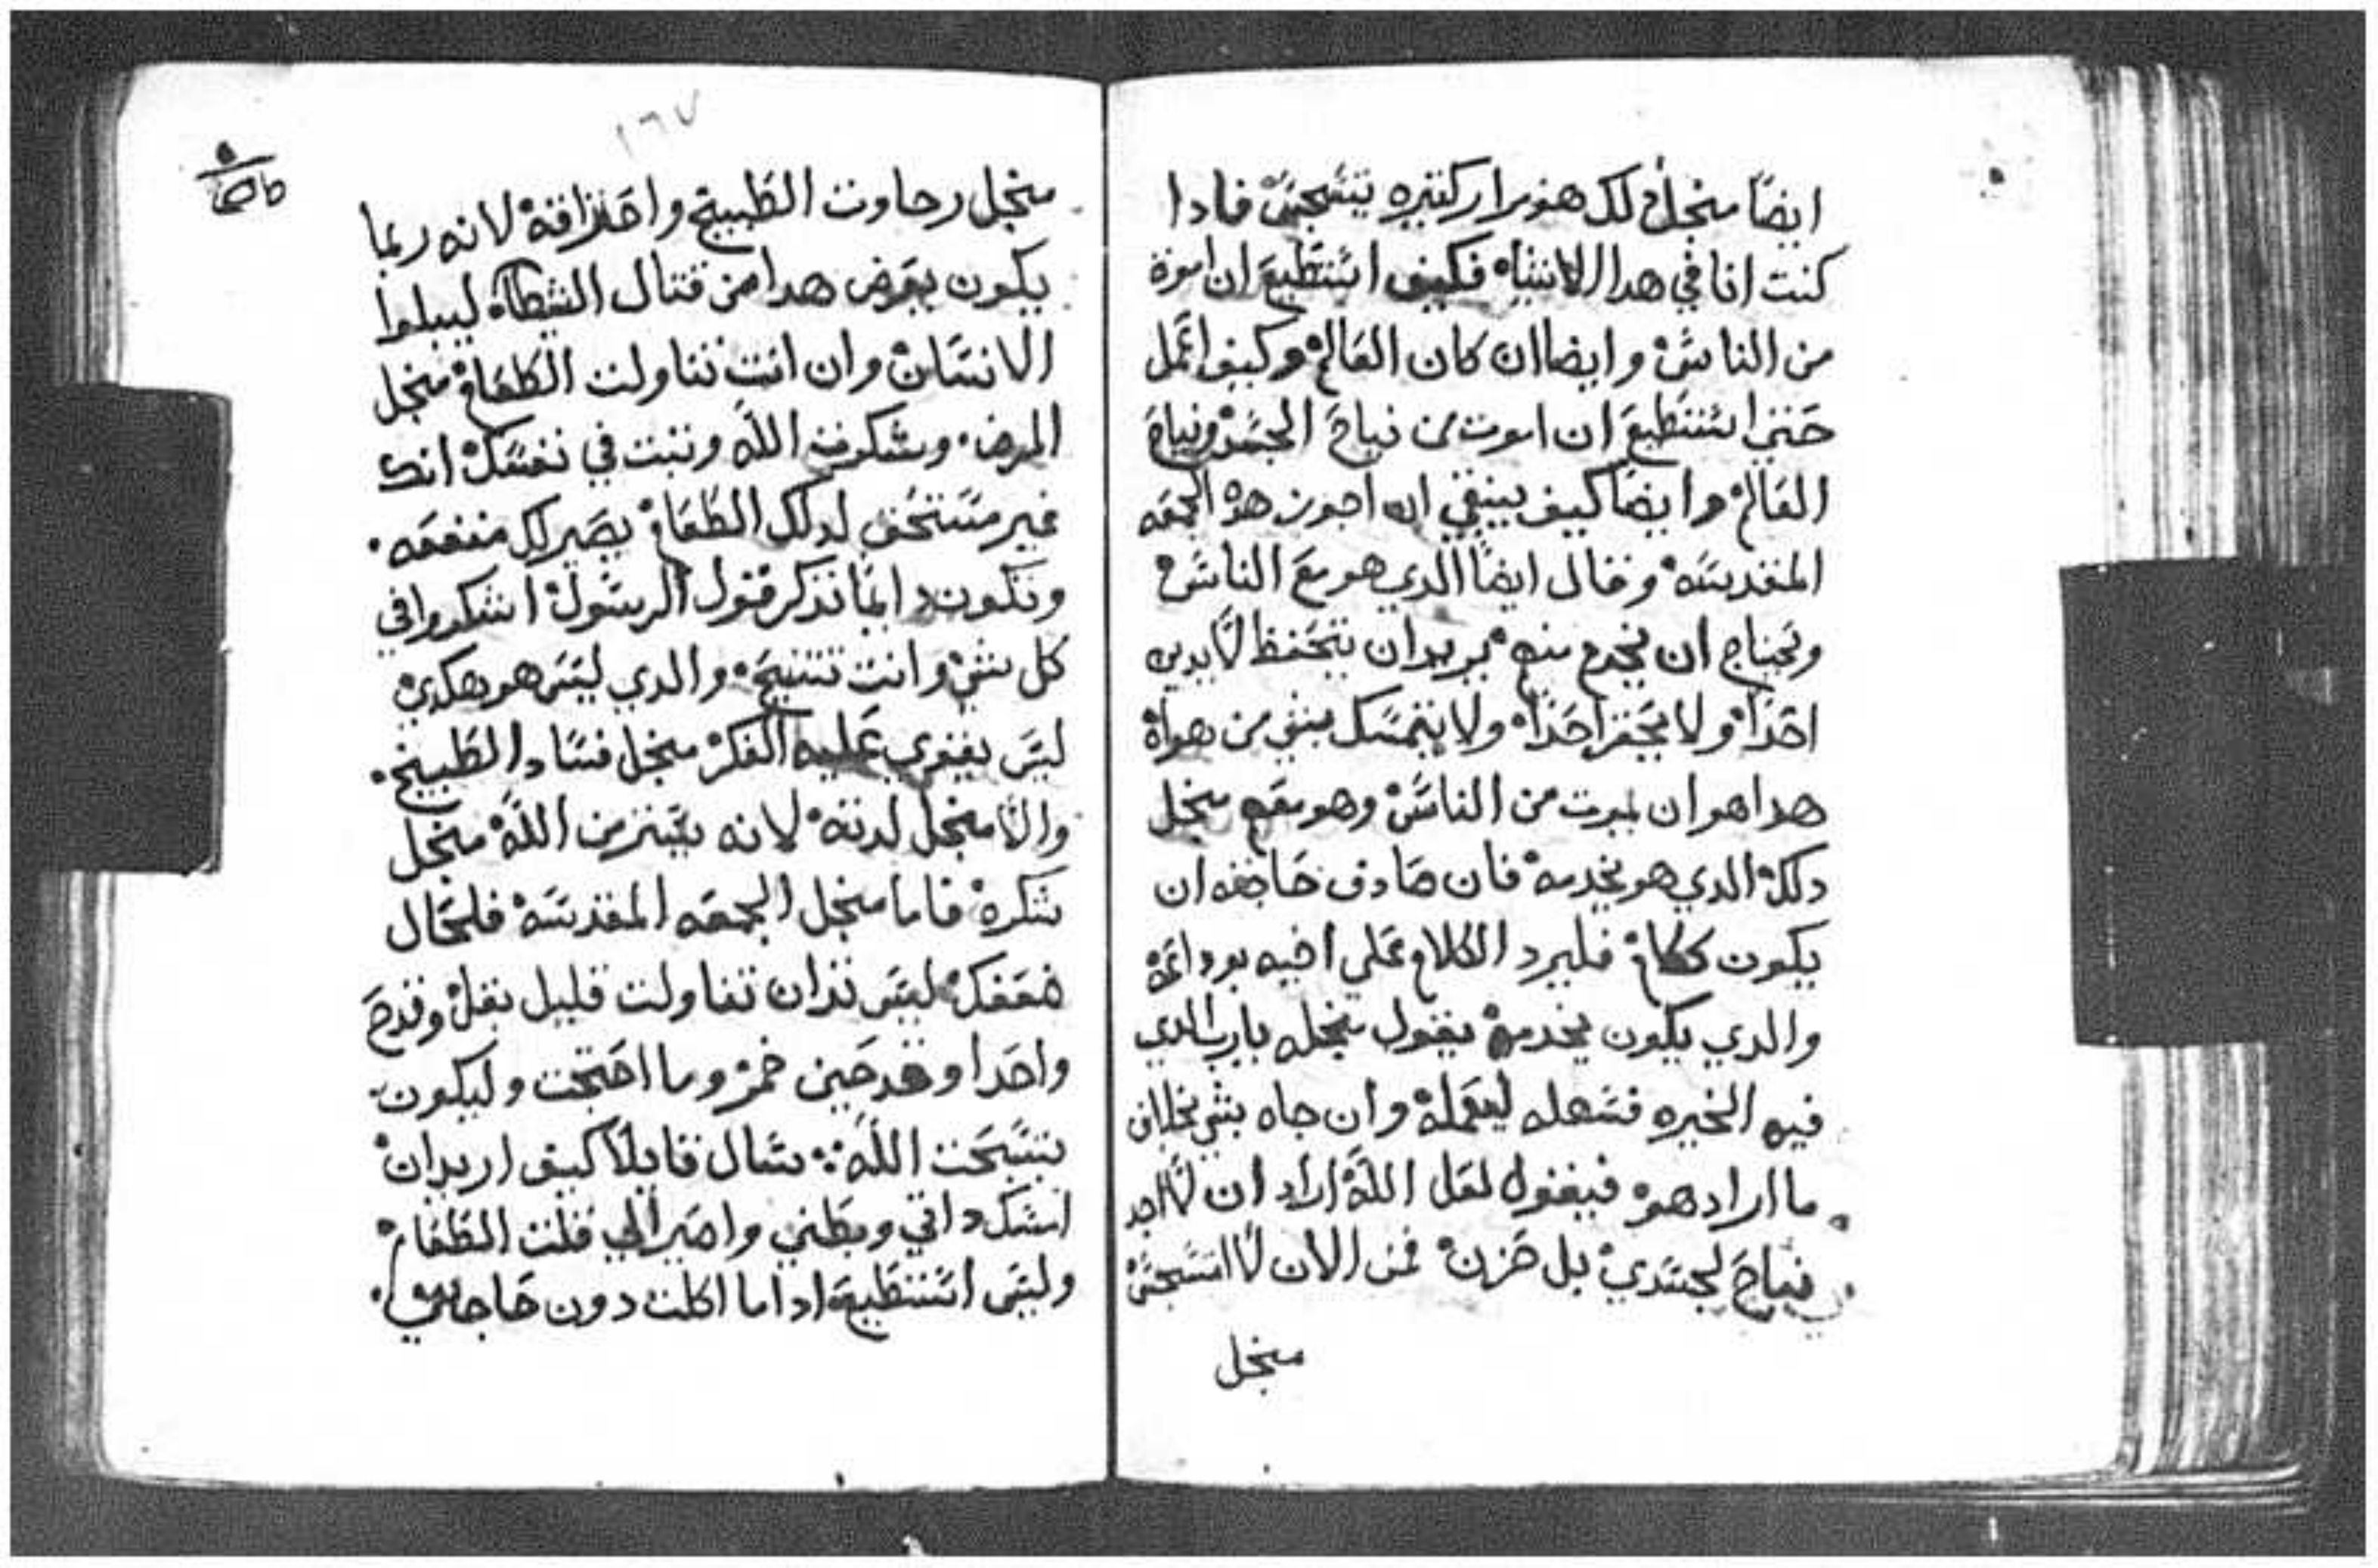 ايضا منجل دلك هو مرار كتيره يتسجس فادا
كنت انا في هدا الاشياء فكيف استطيع ان اموت
من الناس وايضا ان كان العالم وكيف اعمل
حتي استطيع ان اموت من نياح الجسد ونياح
العالم وايضا كيف ينبغي ان اجوز هده الجمعه
المقدسه وقال ايضا الدي هو مع الناس
ويحتاج ان يخدم منهم يريد ان يتحفظ لا يدين
احدا ولا يحقر احدا ولا يتمسك بشي من هواه
هدا هو ان يموت من الناس وهو معهم منجل
دلك الدي هو يخدمه فان صادف حاجه ان
يكون كلام فليرد الكلام علي اخيه بوداعه
والدي يكون يخدمه يقول منجله يارب الدي
فيه الخيره فسهله ليعمله وان جاه بشي بخلاف
ما اراد هو فيقول لعل الله اراد ان لا اجد
نياح لجسدي بل حزن فمن الان لا اتسجس
منجل
١٦٧
منجل رحاوت الطبيخ واحتراقه لانه ربما
يكون يعرض هدا من قتال الشيطان ليبلوا
الانسان وان انت تناولت الطعام منجل
المرض وشكرت الله وتبت في نفسك انك
غير مستحق لدلك الطعام يصير لك منفعه
وتكون دايما تدكر قول الرسول اشكروا في
كل شي وانت تتنيح والدي ليس هو هكدي
ليس يقوي عليه الفكر منجل فساد الطبيخ
والا منجل لدته لانه يتميز من الله منجل
شكره فاما منجل الجمعه المقدسه فلحال
ضعفك ليس تدان تناولت قليل بقل وقدح
واحد او قدحين خمر وما احتجت وليكون
بتسبحت الله سال قايلا كيف اريد ان
امسك داتي وبطني واصير الي قلت الطعام
وليس استطيع ادا ما اكلت دون حاجاتي